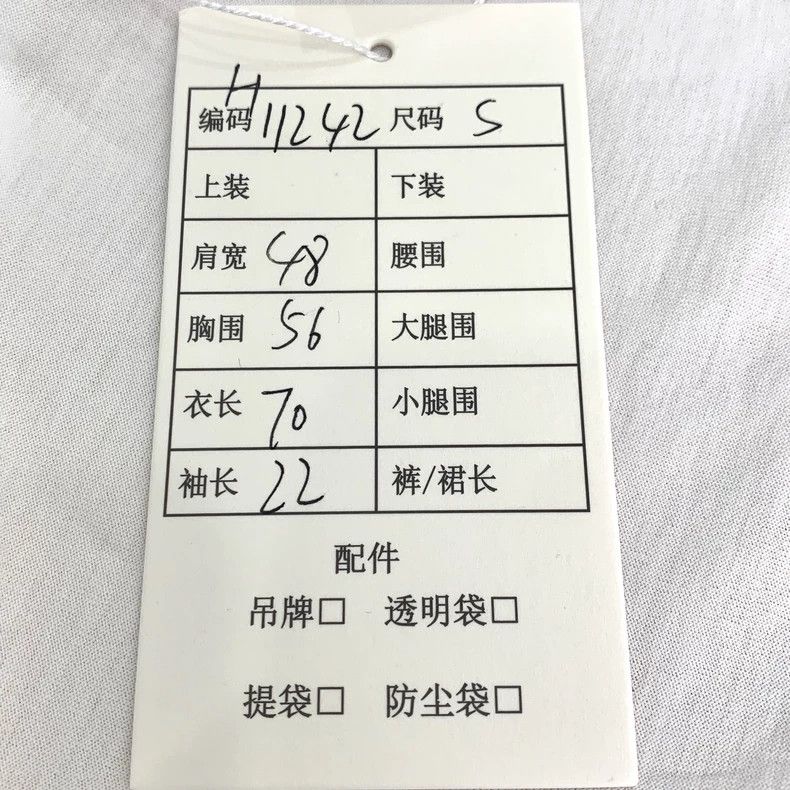 编码 H11242 尺码 S
上装 下装
肩宽 48 腰围
胸围 56 大腿围
衣长 70 小腿围
袖长 22 裤/裙长
配件
吊牌□ 透明袋□
提袋□ 防尘袋□